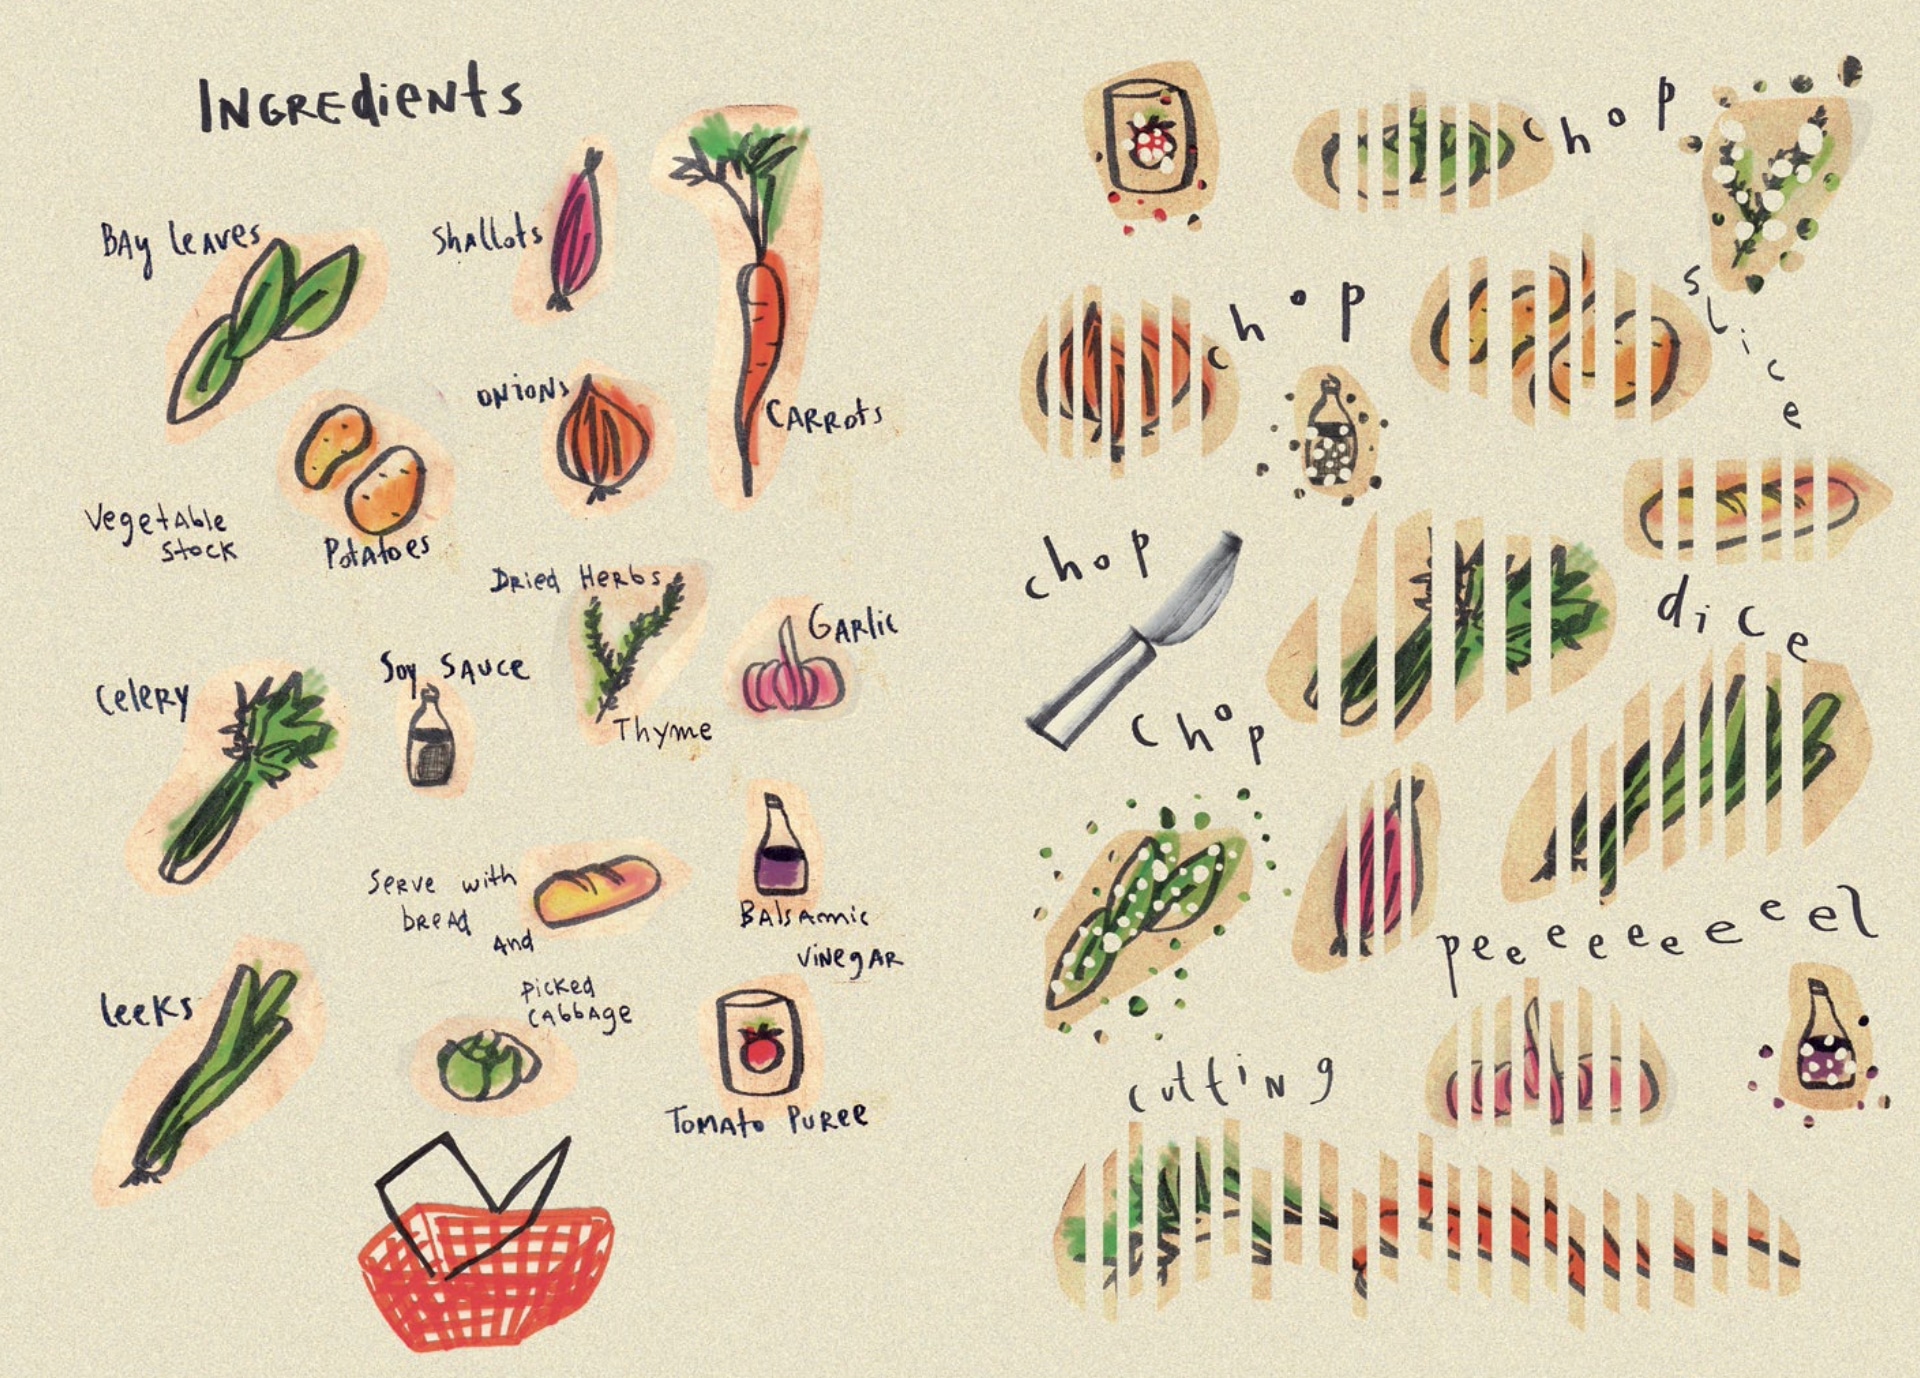 INGREdieNts
BAy leAves
Shallots
ONIONS
CARROts
Vegetable
Stock
Potatoes
Dried Herbs
Thyme
GARlic
Celery
Soy SAUce
Serve with
breAd
And
BAlsAmic
viNegAR
picked
cAbbAge
leeks
ToMAto PuRee
chop
chop
slice
chop
chop
dice
peeeeeeeeel
cuttiNg